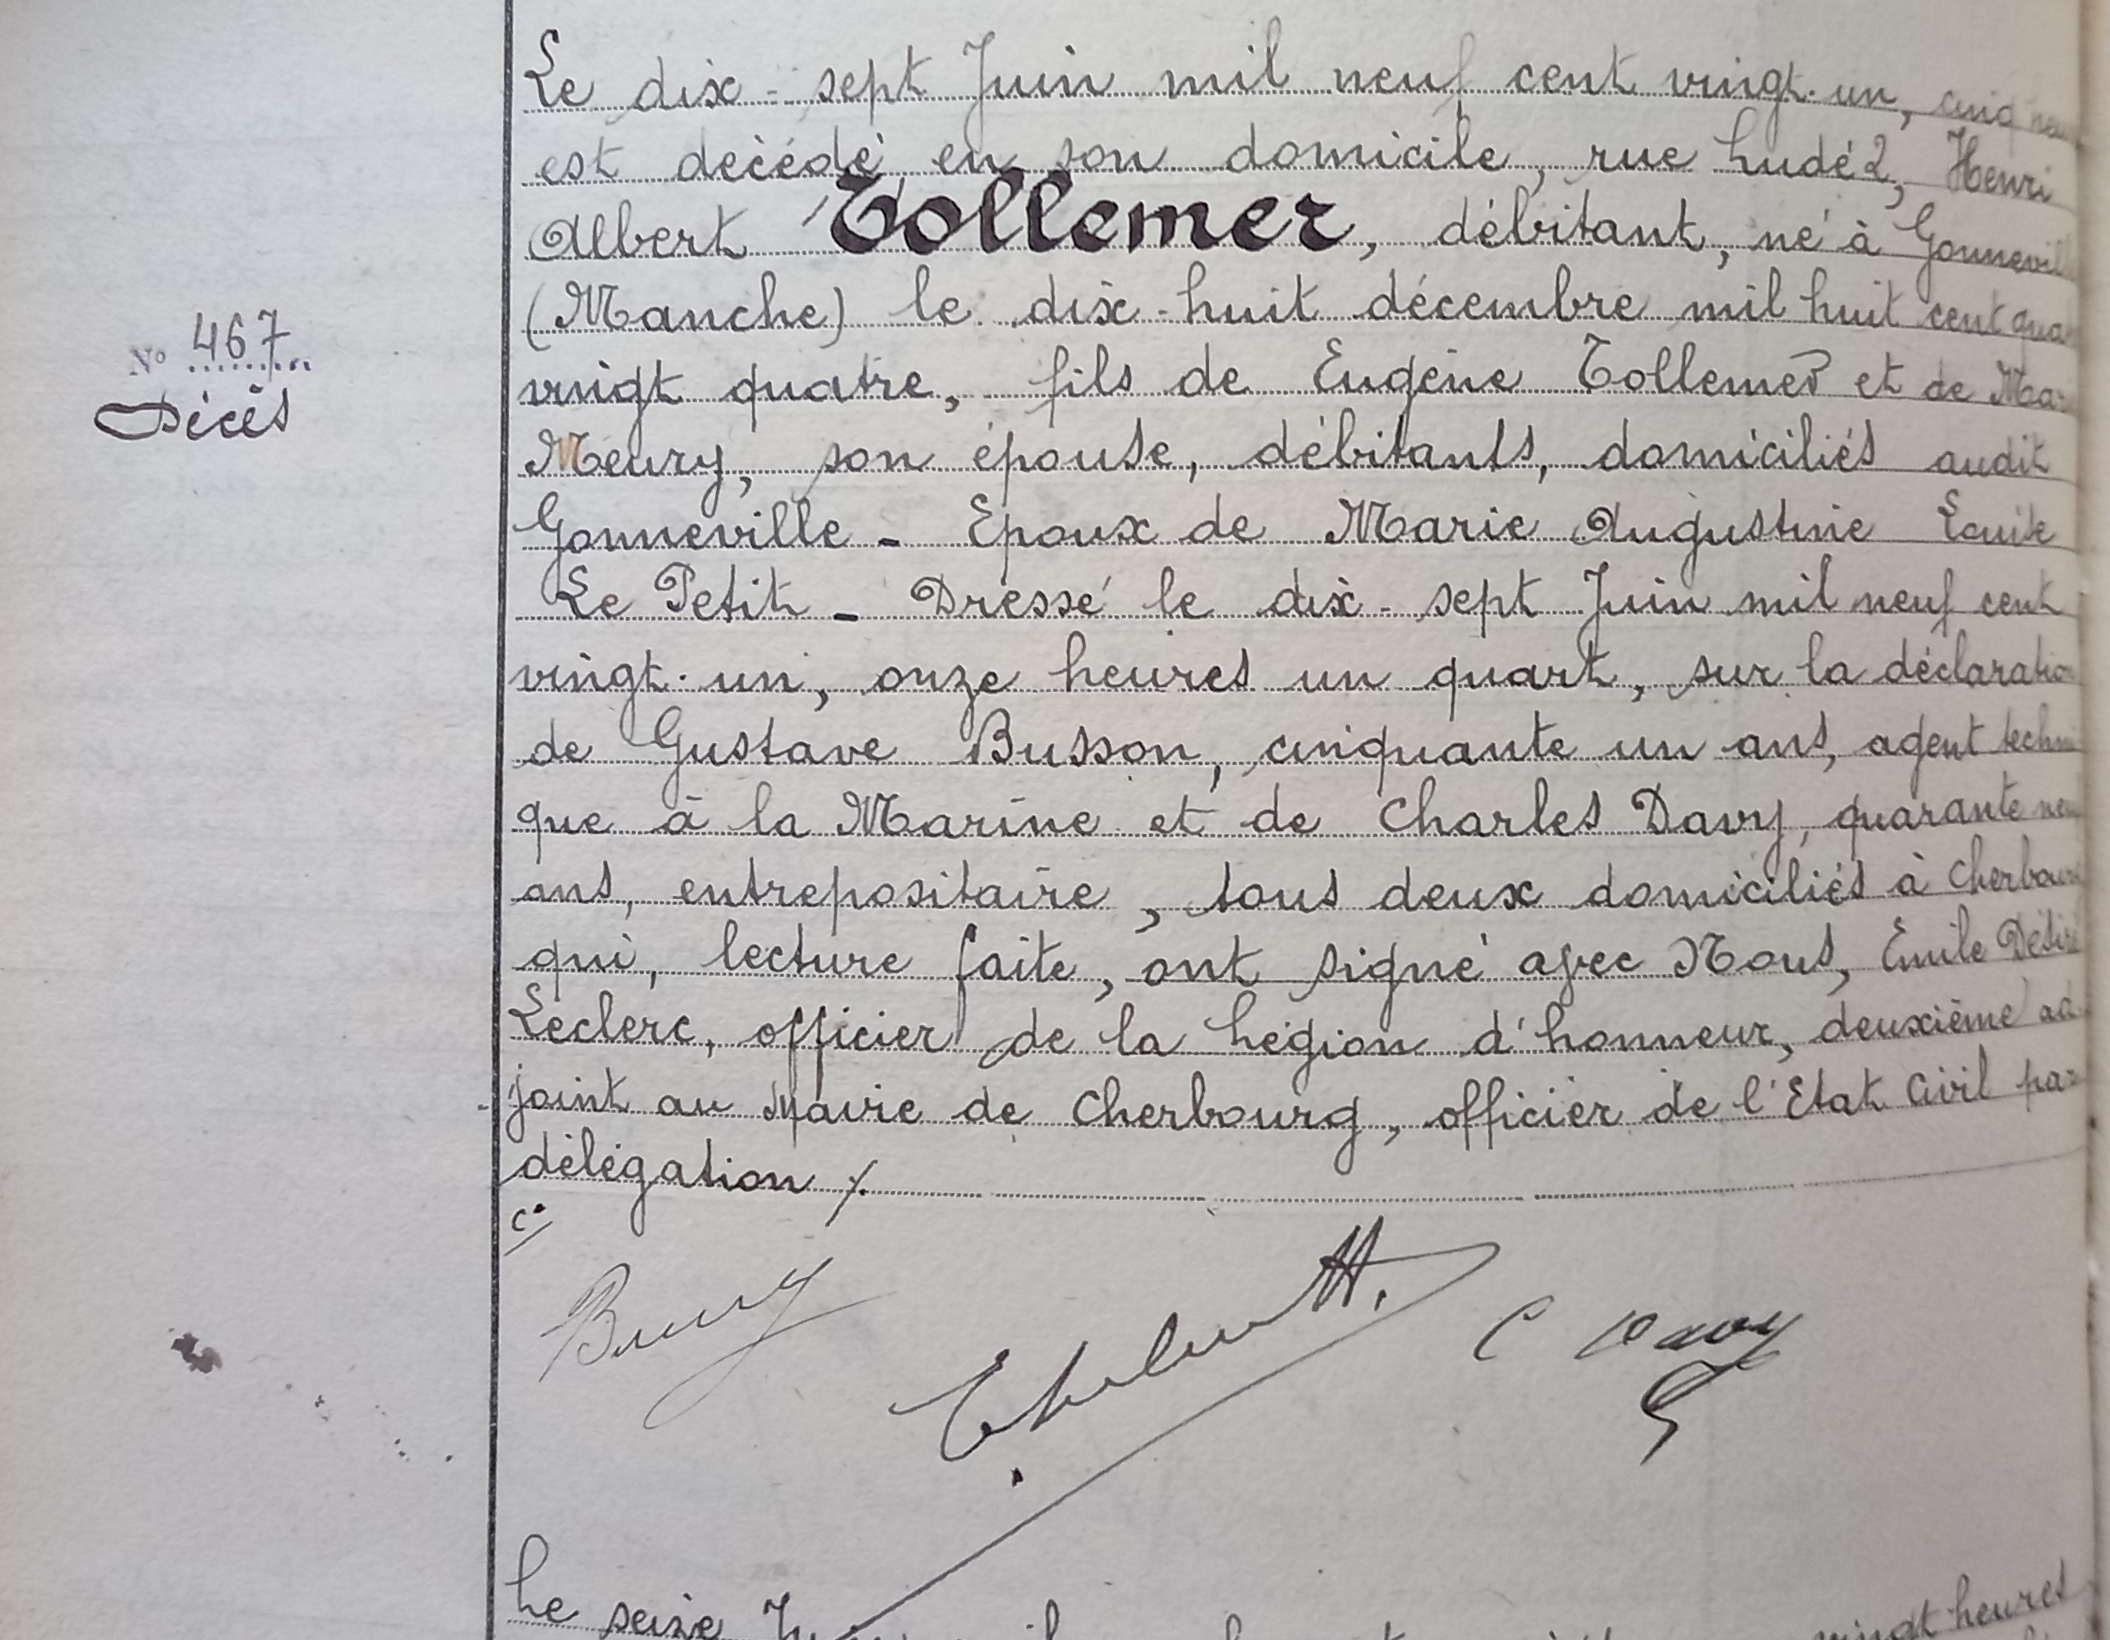 Le dix-sept Juin mil neuf cent vingt-un, cinq
est décédé en son domicile, rue Ludé 2, Henri
Albert Tollemer, débitant, né à Gonnevil
(Manche) le dix-huit décembre mil huit cent qua
vingt quatre, fils de Eugène Tollemer et de Mar
Meury, son épouse, débitants, domiciliés audit
Gonneville - Epoux de Marie Augustine Louise
Le Petit - Dressé le dix-sept Juin mil neuf cent
vingt-un, onze heures un quart, sur la déclaration
N° 467
Décès
de Gustave Busson, cinquante un ans, agent techni
que à la Marine et de Charles Davy, quarante neu
ans, entrepositaire, tous deux domiciliés à Cherbourg
qui, lecture faite, ont signé avec Nous, Emile Désiré
Leclerc, officier de la Légion d'honneur, deuxième ad
joint au Maire de Cherbourg, officier de l'Etat Civil par
délégation ./.
C Davy
Le seize
vingt heures